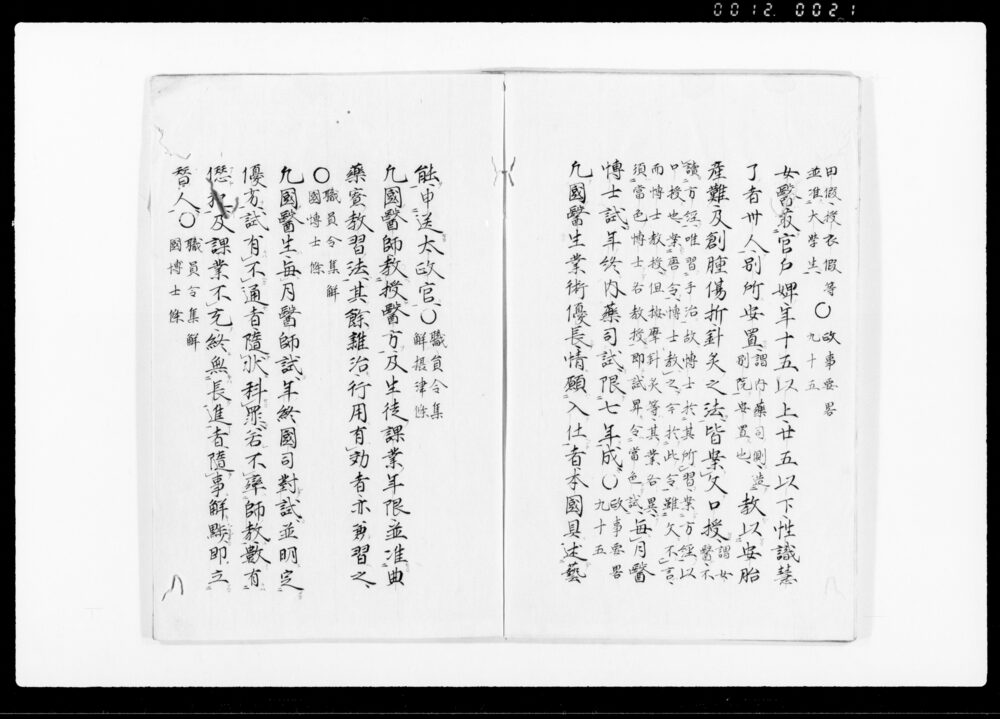 0012 0021
田假授衣假等
並准大学生
〇政事要畧
九十五
女醫取官戸婢年十五以上廿五以下性識慧
了者卅人別所安置
謂内藥司側造
別院安置也
教以安胎
産難及創腫傷折針灸之法皆案文口授
謂女
醫不
讀方經唯習手治故博士於其所習業方經以
口授也案唐令博士教之今於此令雖文不言
而博士教授但按摩針灸等其業各異
須當色博士各教授即試昇令當色試
毎月醫
博士試年終内藥司試限七年成〇
政事要畧
九十五
凡國醫生業術優長情願入仕者本國具述藝
能申送太政官〇
職員令集
解摂津條
凡國醫師教授醫方及生徒課業年限並准典
藥寮教習法其餘雜治行用有効者亦兼習之
〇
職員令集解
國博士條
凡國醫生毎月醫師試年終國司對試並明定
優劣試有不通者隨状科罪若不率師教數有
愆犯及課業不充終無長進者隨事解黜即立
替人〇
職員令集解
國博士條